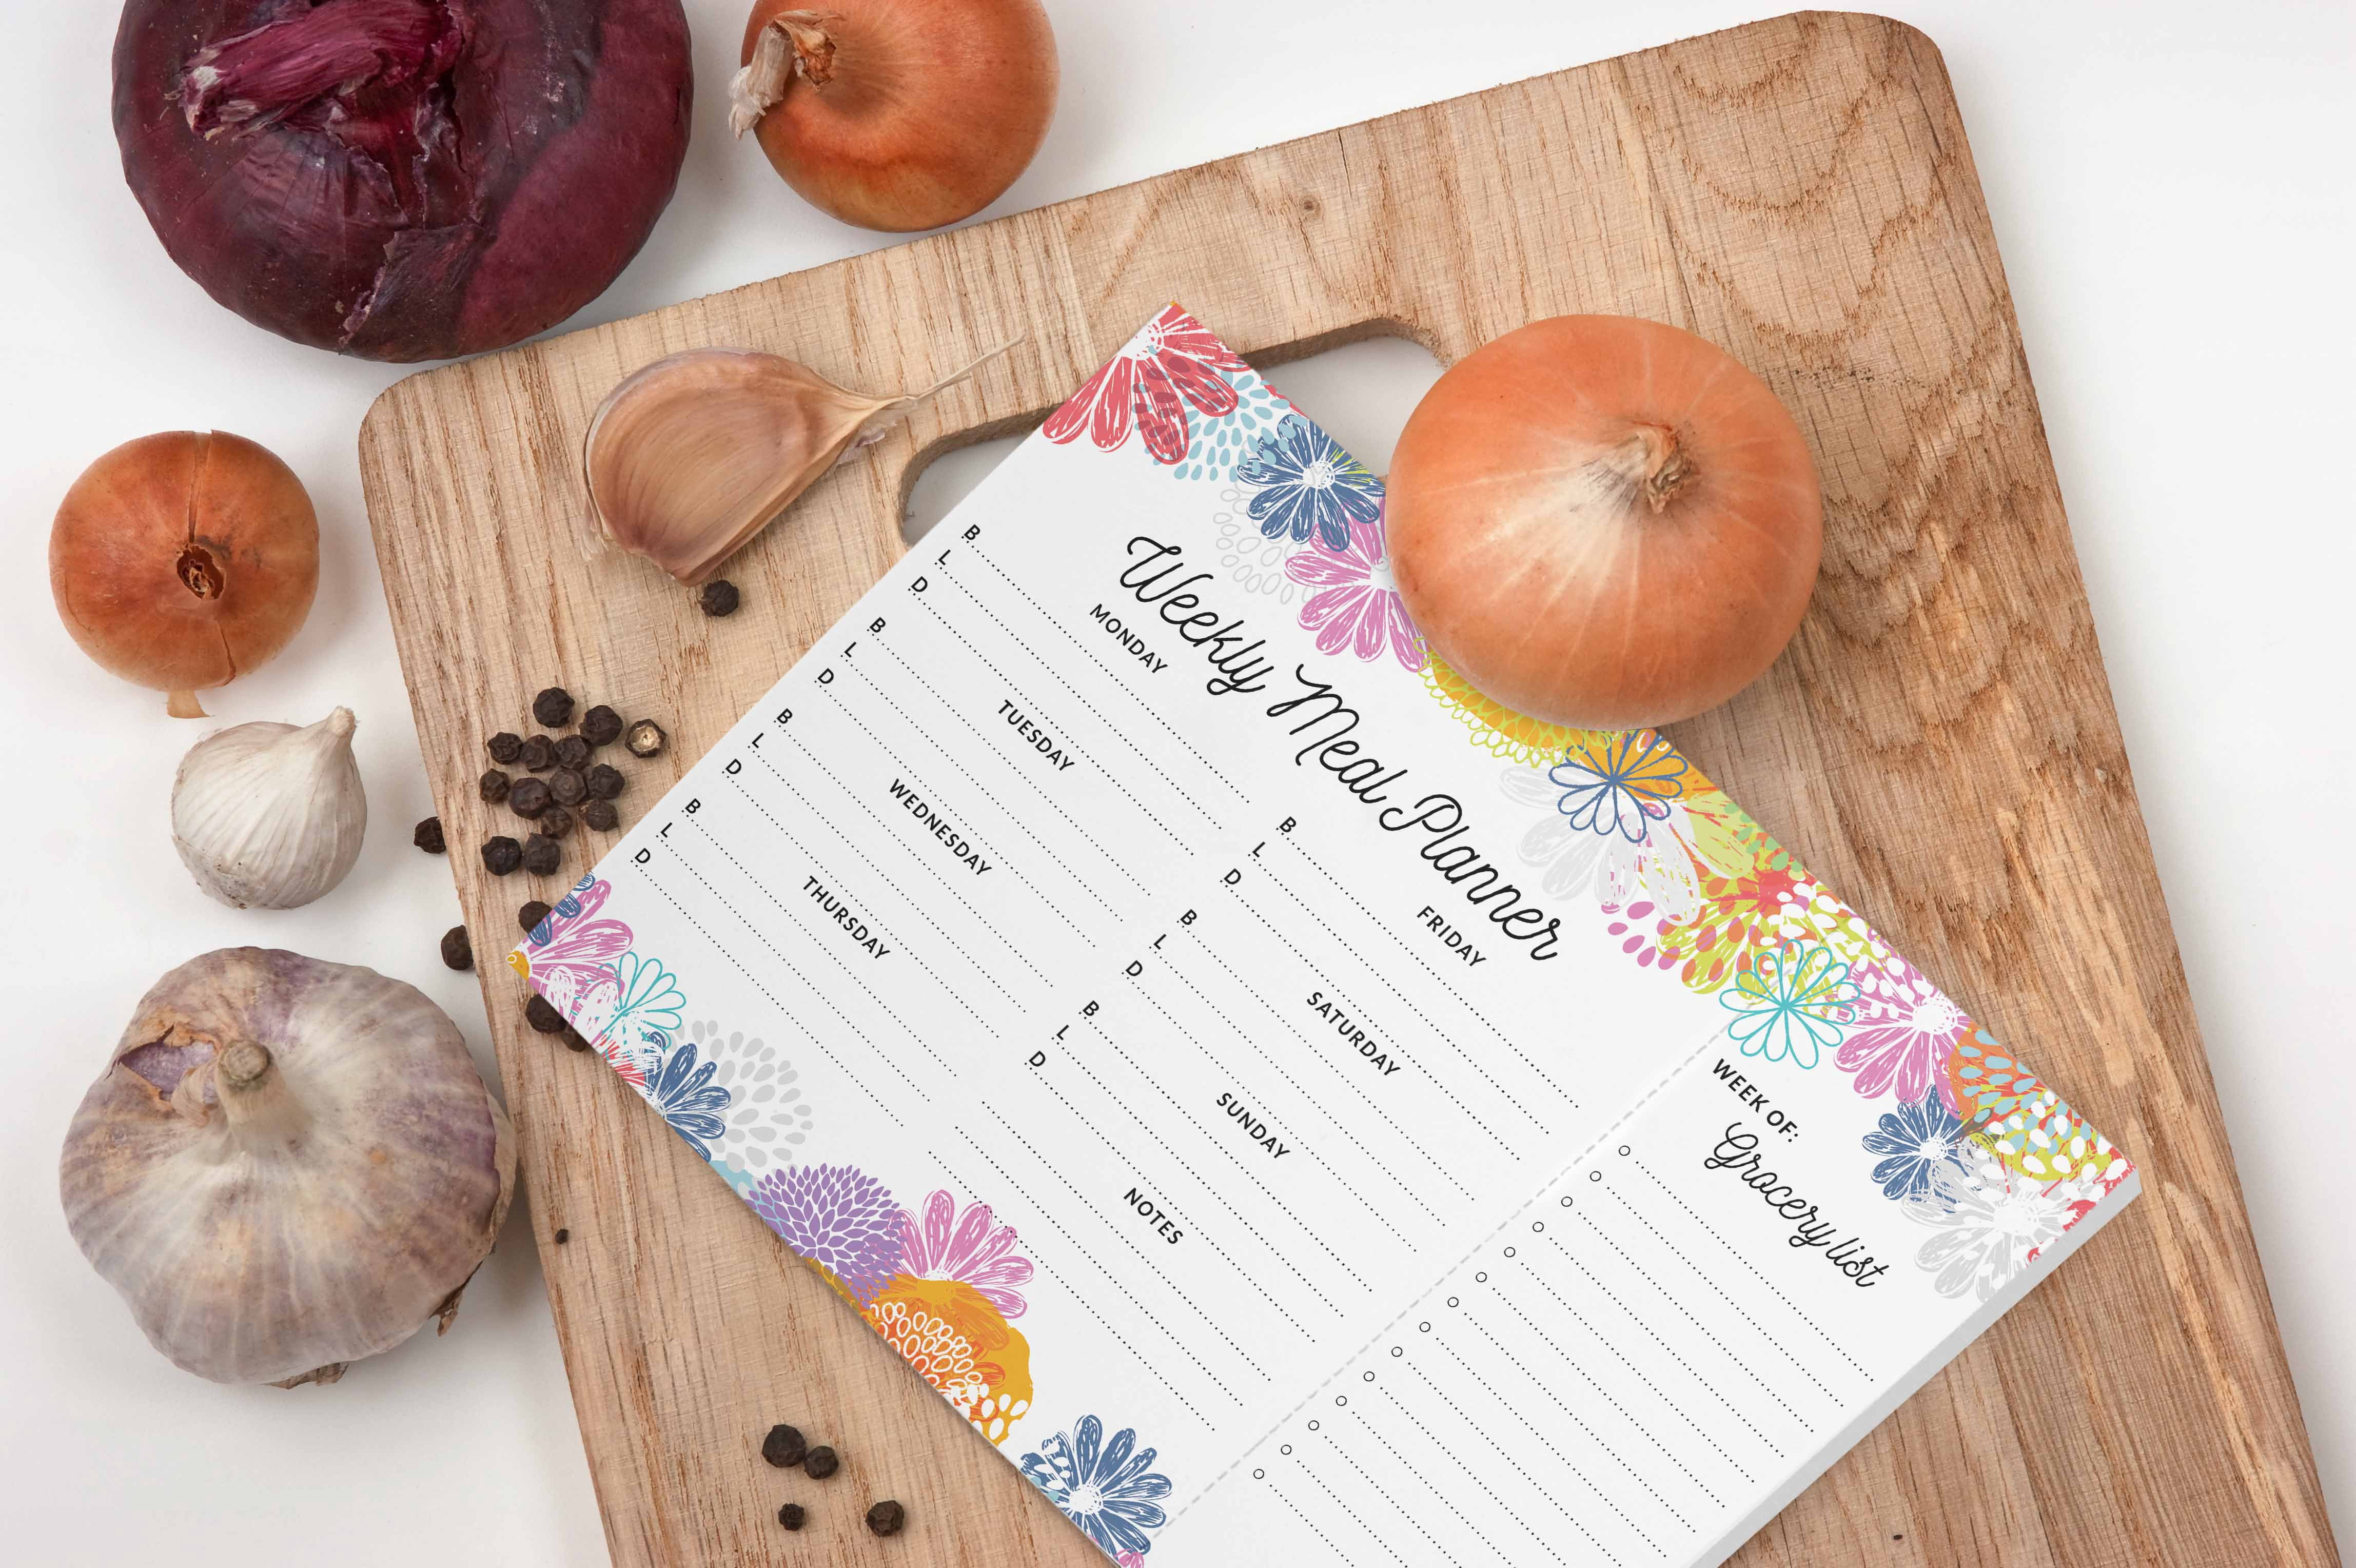 Weekly Meal Planner
MONDAY
B
L
D
TUESDAY
B
L
D
WEDNESDAY
B
L
D
THURSDAY
B
L
D
FRIDAY
B
L
D
SATURDAY
B
L
D
SUNDAY
B
L
D
NOTES
WEEK OF:
Grocery list